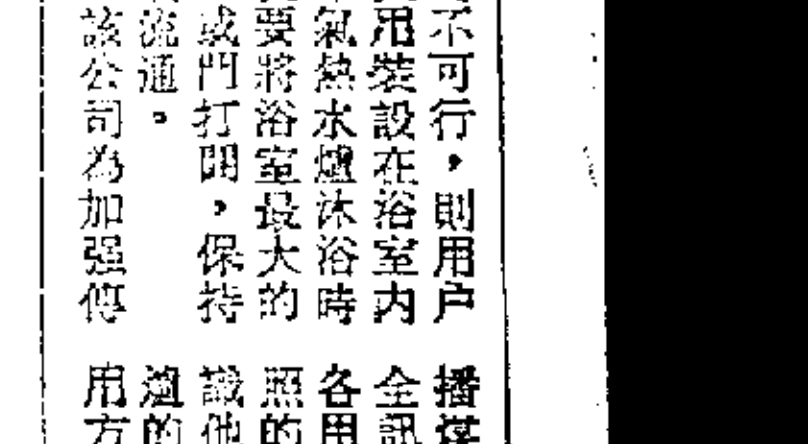 不可行，則用户
用裝設在浴室内
氣熱水爐沐浴時
要將浴室最大的
或門打開，保持
流通。
該公司為加强傳
播煤
全訊
各用
照的
識他
的
用方